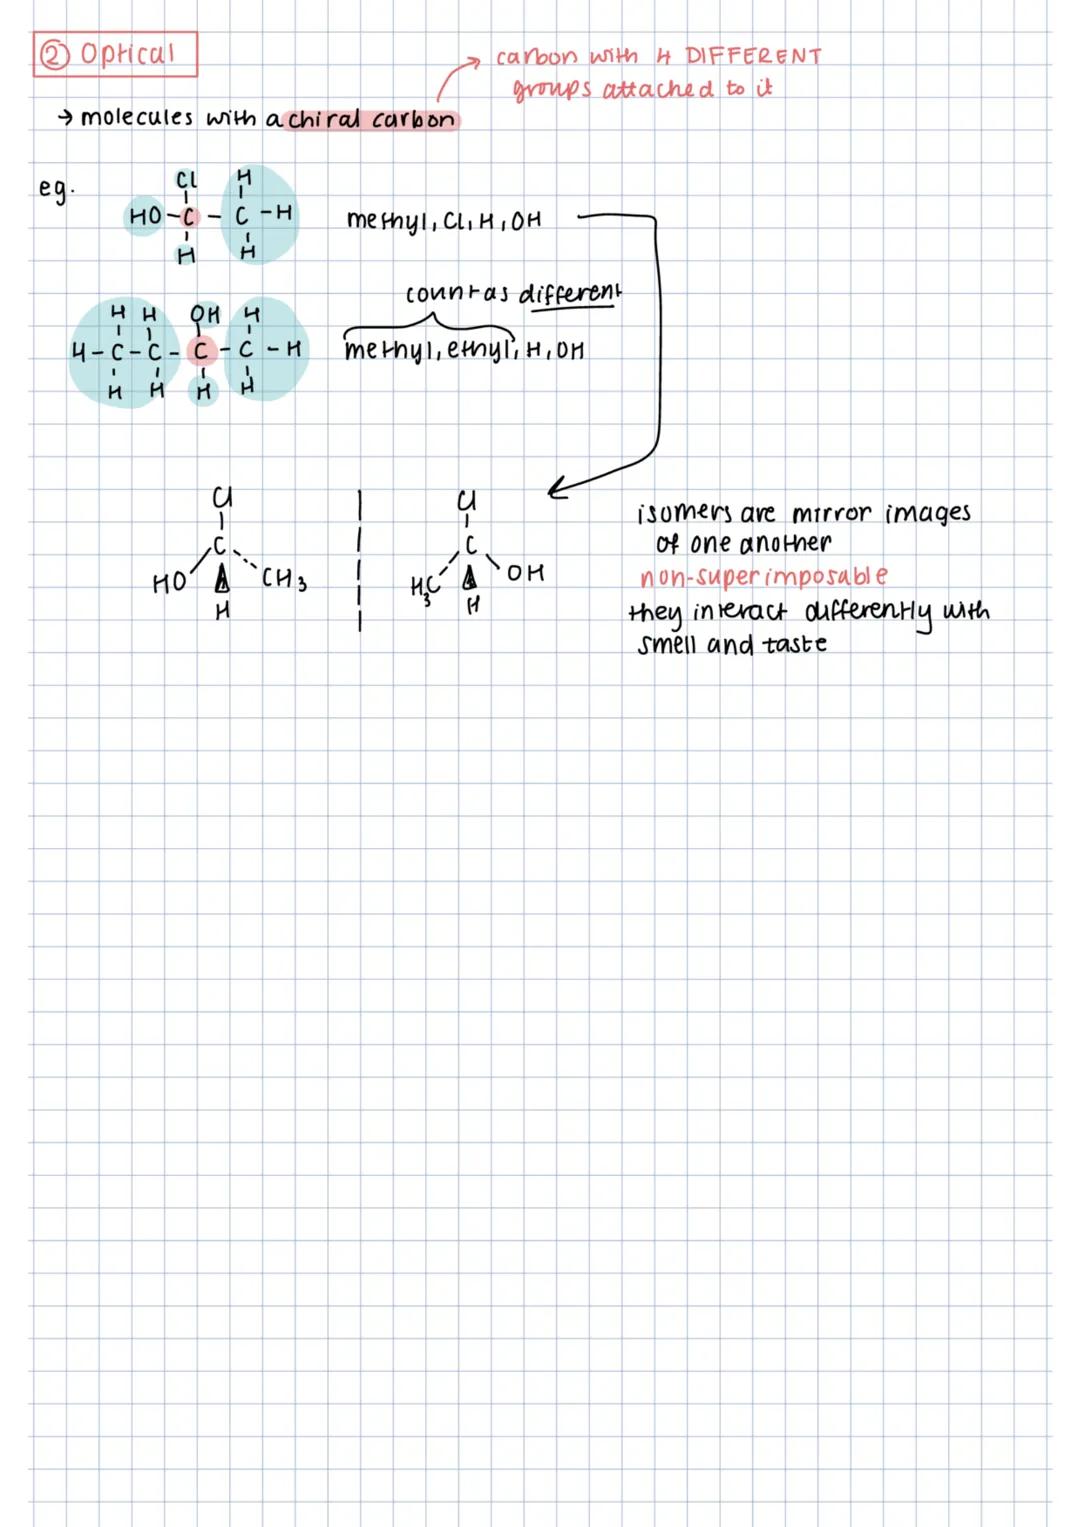 ② Optical
carbon with 4 DIFFERENT
groups attached to it
→ molecules with a chiral carbon
eg.
Cl H
HO-C-C-H
H H
methyl, Cl, H, OH
count as different
H H OH H
H-C-C-C-C-H
H H H H
methyl, ethyl, H, OH
Cl
C
HO CH3
H
Cl
C
H3C OH
H
isomers are mirror images
of one another
non-superimposable
they interact differently with
smell and taste